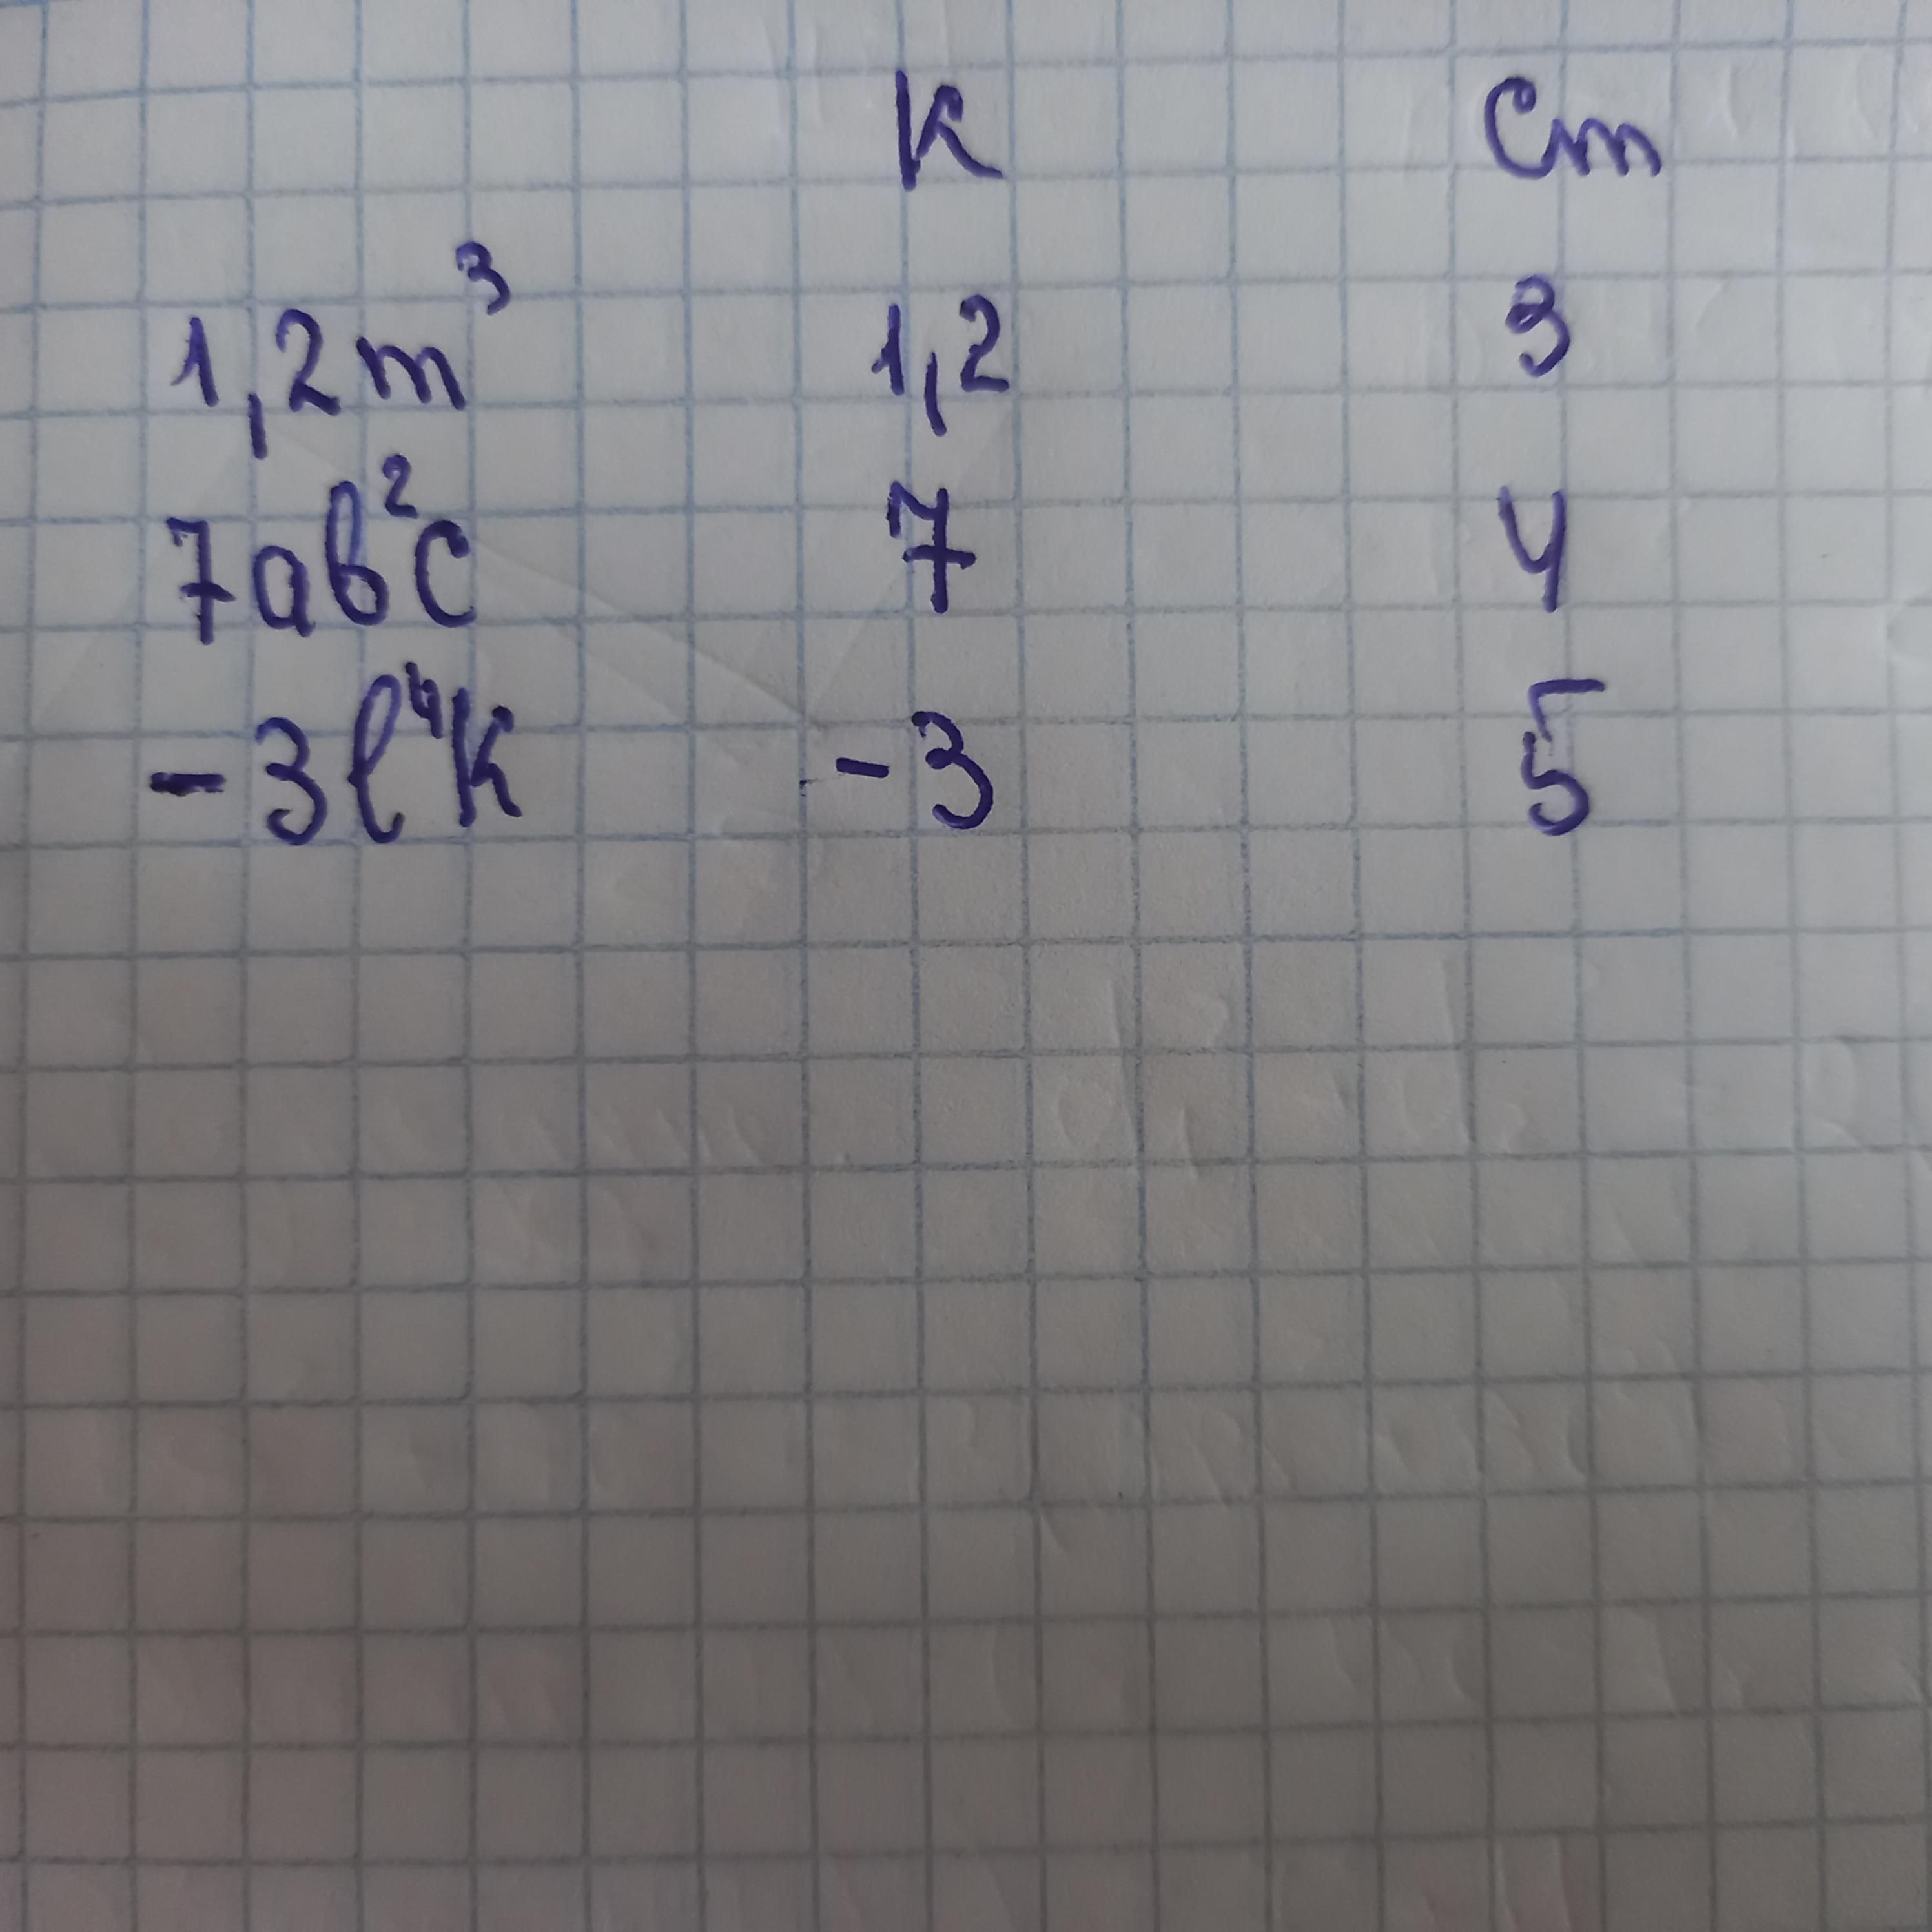 К Ст
1,2m³ 1,2 3
7ab²c 7 4
-3l⁴k -3 5